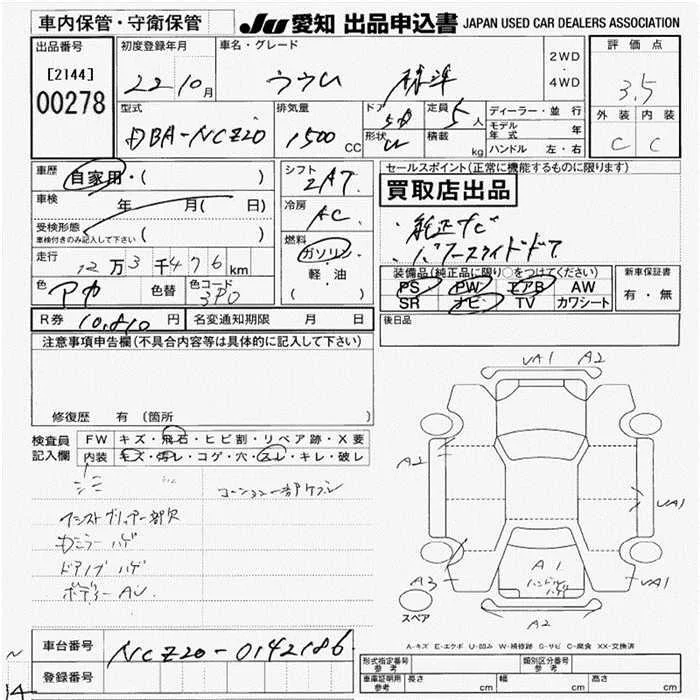 車内保管・守衛保管
JU 愛知 出品申込書 JAPAN USED CAR DEALERS ASSOCIATION
出品番号
[2144]
00278
初度登録年月
22 10月
車名・グレード
標準
2WD
・
4WD
評価点
3.5
外装 内装
C C
型式
DBA-NCZ20
排気量
1500 CC
ドア
5D
形状
定員
5人
積載
kg
ディーラー・並行
モデル年式 年
ハンドル 左・右
車歴
自家用・( )
車検 年 月( 日)
受検形態
車検付きのみ記入して下さい ( )
走行 12万3千476km
色 色替 色コード
3P0
シフト
2AT
冷房
AC
燃料
ガソリン
・
軽・油
( )
セールスポイント(正常に機能するものに限ります)
買取店出品
・純正ナビ
・パワースライドドア
装備品(純正品に限り○をつけてください)
PS PW エアB AW
SR ナビ TV カワシート
新車保証書
有・無
R券 10,810円
名変通知期限 月 日
後日品
注意事項申告欄(不具合内容等は具体的に記入して下さい)
修復歴 有 (箇所
検査員
記入欄
FW キズ・飛石・ヒビ割・リペア跡・X要
内装 キズ・汚レ・コゲ・穴・スレ・キレ・破レ
カミラー ハゲ
ドアノブ ハゲ
UA1 A2
A2
UA1
A1
ハンドル
ハゲ
A3
UA1
A2
スペア
A-キズ E-エクボ U-凹み W-補修跡 S-サビ C-腐食 XX-交換済
車台番号
NCZ20-0142186
登録番号
形式指定番号
参考
類別区分番号
参考
車庫証明
参考
長さ cm 幅 cm 高さ cm